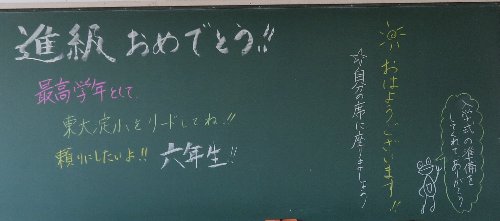 進級おめでとう!!
最高学年として
東大淀小をリードしてね!!
頼りにしたいよ!! 六年生!!
おはようございます!!
☆自分の席に座りましょう
入学式の準備を
してくれてありがとう